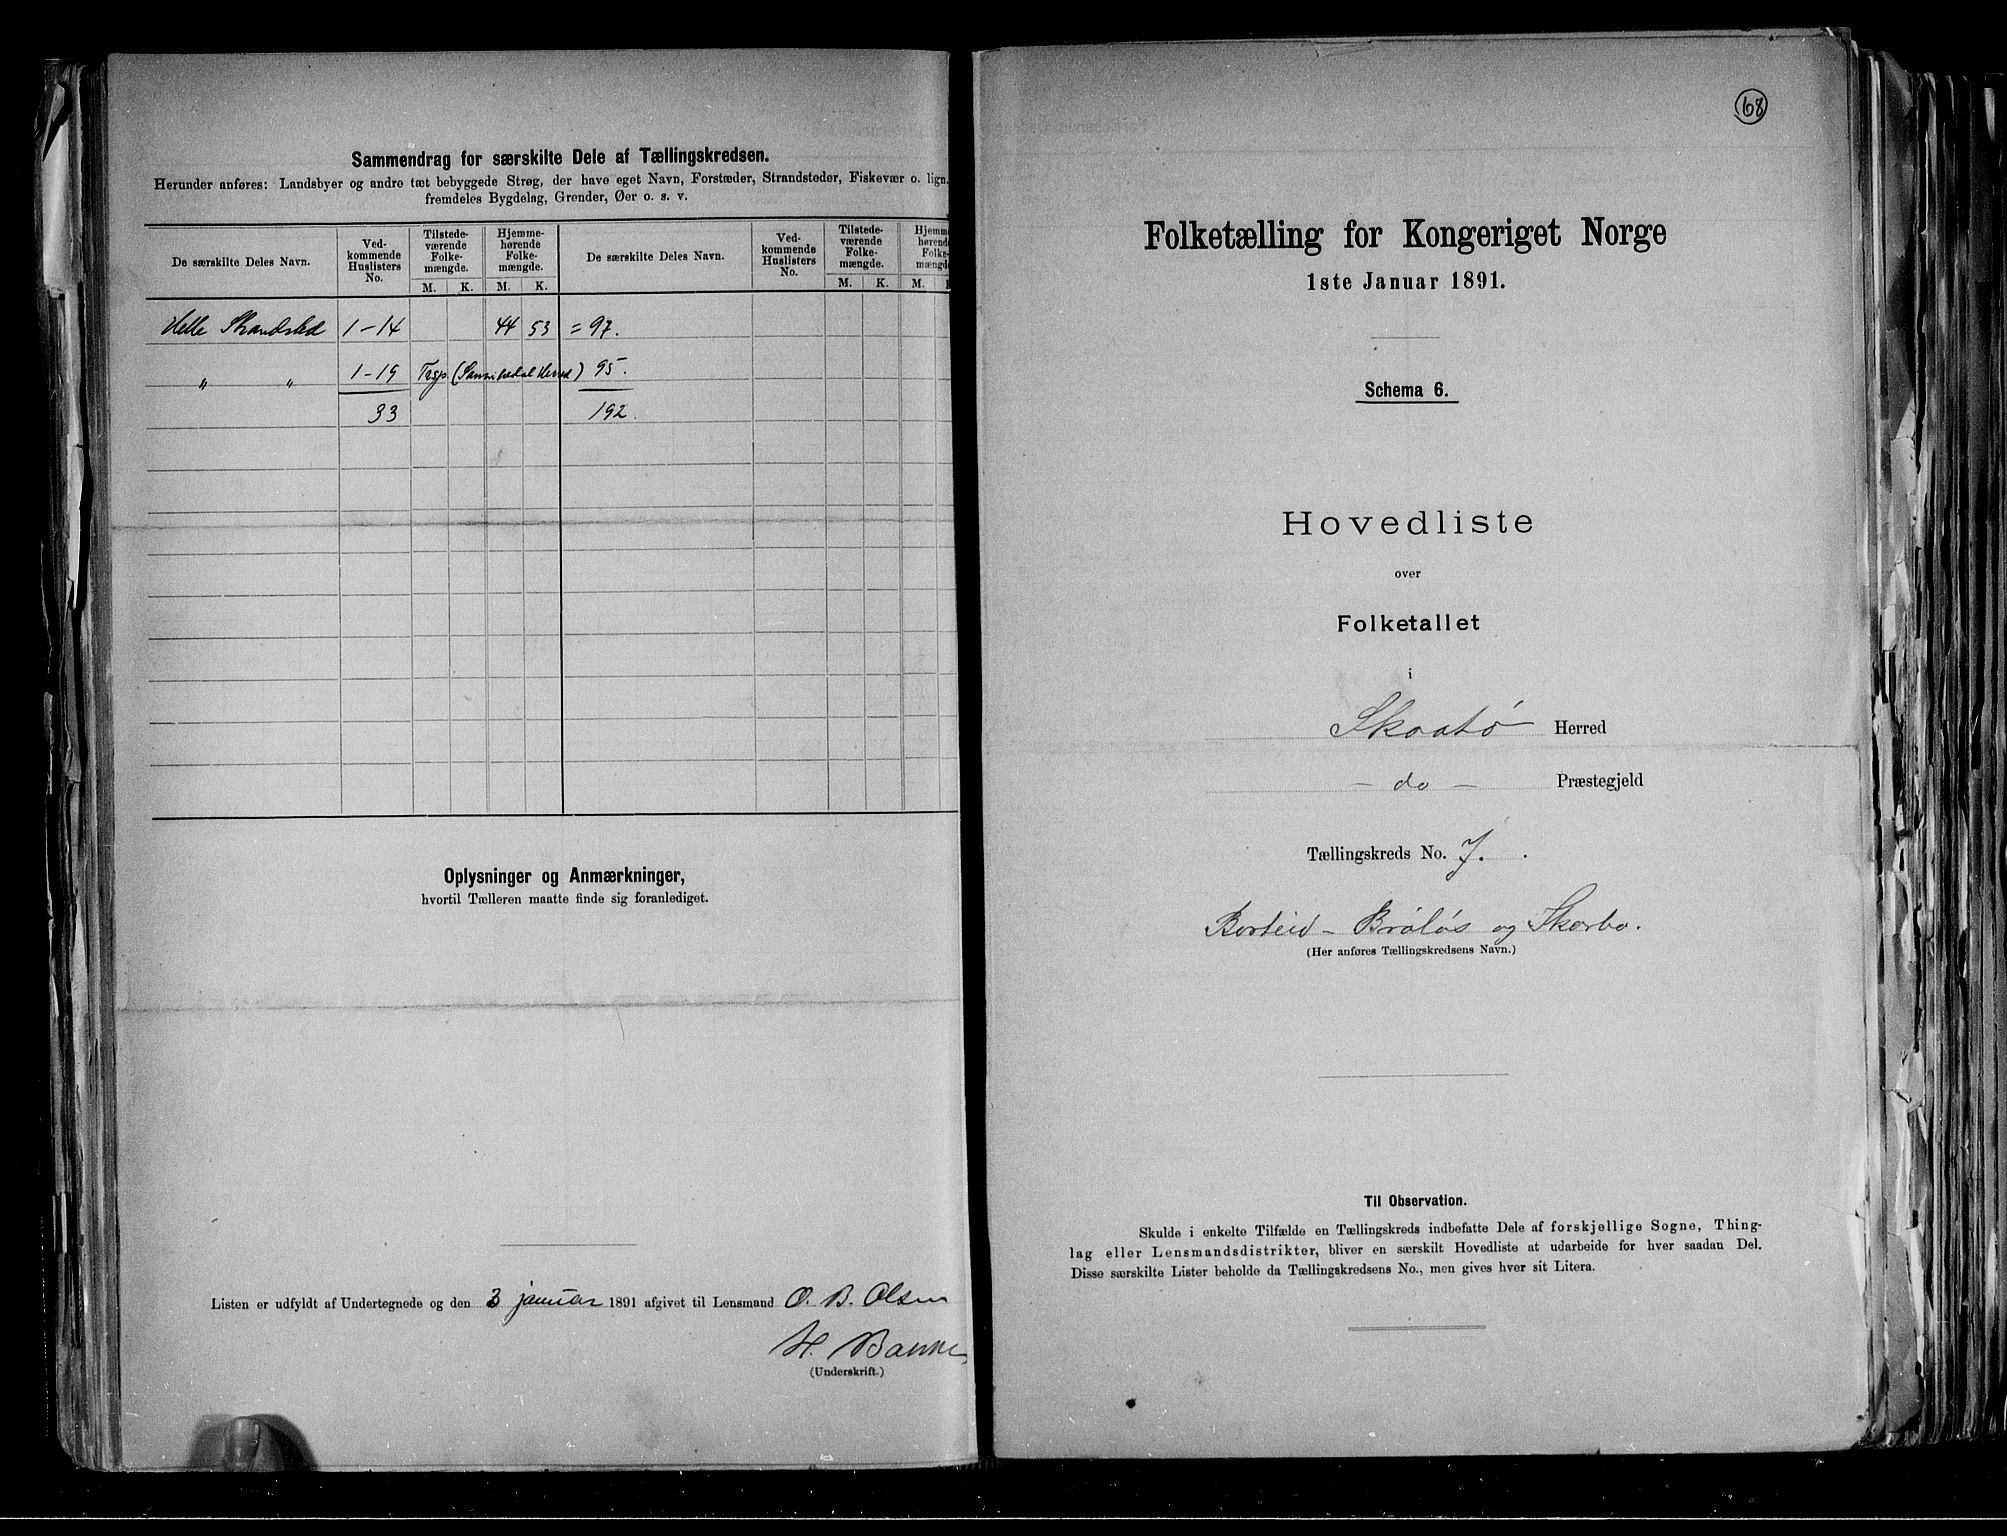 Sammendrag for særskilte Dele af Tællingskredsen.
Herunder anføres: Landsbyer og andre tæt bebyggede Strøg, der have eget Navn, Forstæder, Strandsteder, Fiskevær o. lign.
fremdeles Bygdelag, Grender, Øer o. s. v.
De særskilte Deles Navn. Ved- kommende Huslisters No. Tilstede- værende Folke- mængde. Hjemme- hørende Folke- mængde. De særskilte Deles Navn. Ved- kommende Huslisters No. Tilstede- værende Folke- mængde. Hjemme hørende Folke- mængde
M. K. M. K. M. K. M.
Helle Strandsted 1-14 44 53 = 97.
„ „ 1-19 (Sannikedal Herred) 95.
33 192.
Oplysninger og Anmærkninger,
hvortil Tælleren maatte finde sig foranlediget.
Listen er udfyldt af Undertegnede og den 3 januar 1891 afgivet til Lensmand O. B. Olsen
(Underskrift.)
68
Folketælling for Kongeriget Norge
1ste Januar 1891.
Schema 6.
Hovedliste
over
Folketallet
i
Skaatø Herred
- do - Præstegjeld
Tællingskreds No. 7.
Borteid - Brøløs og Skorbo.
(Her anføres Tællingskredsens Navn.)
Til Observation.
Skulde i enkelte Tilfælde en Tællingskreds indbefatte Dele af forskjellige Sogne, Thing-
lag eller Lensmandsdistrikter, bliver en særskilt Hovedliste at udarbeide for hver saadan Del.
Disse særskilte Lister beholde da Tællingskredsens No., men gives hver sit Litera.